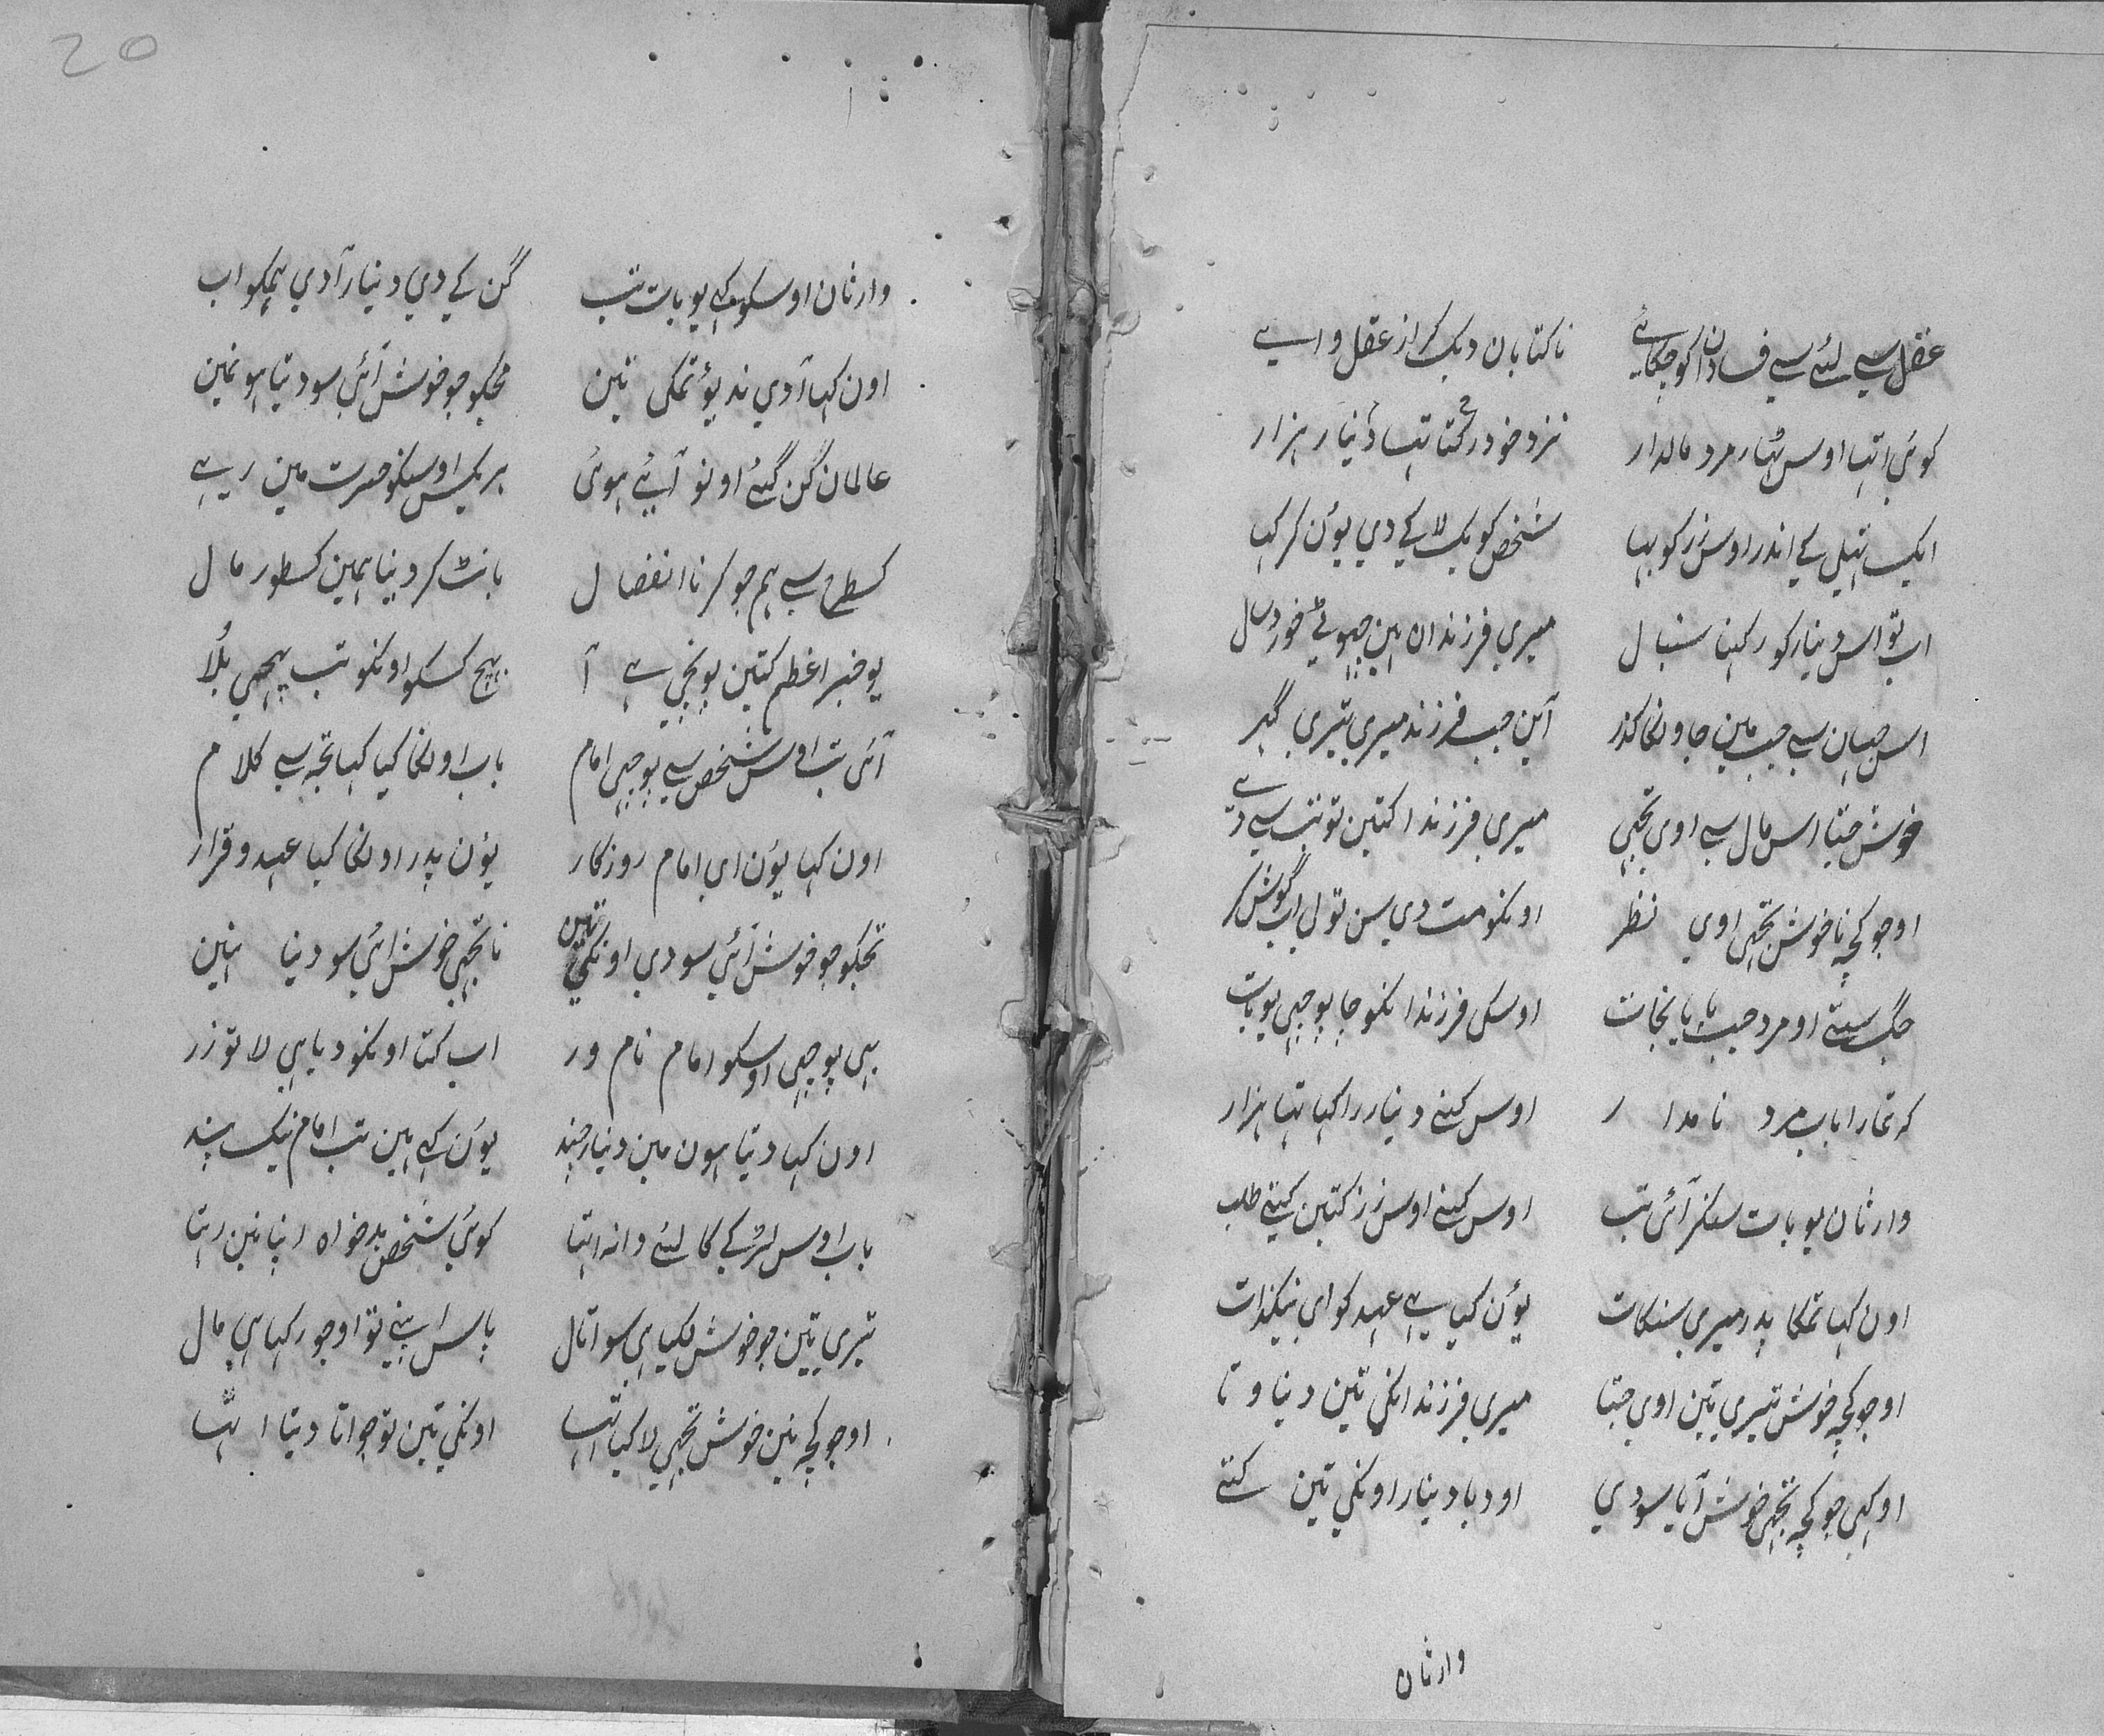 عقل سے لئے سے فسادان کو چکائے   ناکتابان دیک کر از عقل و اسے
کوئی اتہا اوس ٹہار مرد مالدار   نزد خود رکھتا تہا دینار ہزار
ایک تہیلی کے اندر اوس زر کو بہا   شخص کو یک لاکے دی یوں کر کہا
اب تو اس دینار کو رکہنا سنبال   میری فرزندان ہین چہوٹے خورد سال
اس جہان سے جب مین جاونکا گذر   آین جب فرزند میری تیری گہر
خوش جتا اس مال سے اوی تجہی   میری فرزندا کتین تو تب سے دے
او جو کچہ ناخوش تجہی اوی نظر   اونکو مت دی سن تو ل اب گوش کر
جگ ستے او مرد جب پایا نجات   اوسکی فرزندا نکو جا پوچہی یو بات
کہ تمارا باب مرد نامدار   اوس کنے دینار راکہا تہا ہزار
وارثان یو بات سنکر آئی تب   اوس کنے اوس زر کتین کیتے طلب
اون کہا تمکا پدر میری سنکات   یوں کیا ہے عہد کو ای نیکذات
او جو کچہ خوش تیری تین اوی جتا   میری فرزندا نکی تین دینا وتا
او کہی جو کچہ تجہی خوش آیا سو دی   او دیا دینار اونکی تین کتے
وارثان
20
وارثان اوسکو کہے یو بات تب   گن کے دی دینار آدی ہمکو اب
اون کہا آدی ندیوں تمکی تین   مجکو جو خوش آئی سو دیتا ہو نمین
عالمان گن گئے او نو آئے ہوئی   ہر یک اوسکو حسرت مین رہے
کسطرح سے ہم جو کرنا انفصال   بانٹ کر دینا ہمین کسطور مال
یو خبر اعظم کتین پونچی ہے آ   بہیج کسکو اونکو تب پیچہی بلا
آئی تب اوس شخص سے پوچہی امام   باب اونکا کیا کہا تجہ سے کلام
اون کہا یوں ای امام روزکار   یوں پدر اونکا کیا عہد و قرار
تجکو جو خوش آئی سو دی اونکی تین   نا تجہی خوش ائی سو دینا نہین
بہی پوچہی اوسکو امام نامور   اب کتا اونکو دیا ہی لا تو زر
اون کہا دیتا ہون مین دینار چند   یوں کہے ہین تب امام نیک پسند
باب اوس لڑکے کا لئے دانہ اتہا   کوئی شخص بدخواہ اپنا نین رہتا
تیری تین جو خوش لکیا ہی سو اتال   پاس اپنے تو او جو رکہا ہی مال
او جو کچہ نین خوش تجہی لاکیا تہا   اونکی تین تو جو اتا دیتا اتہا